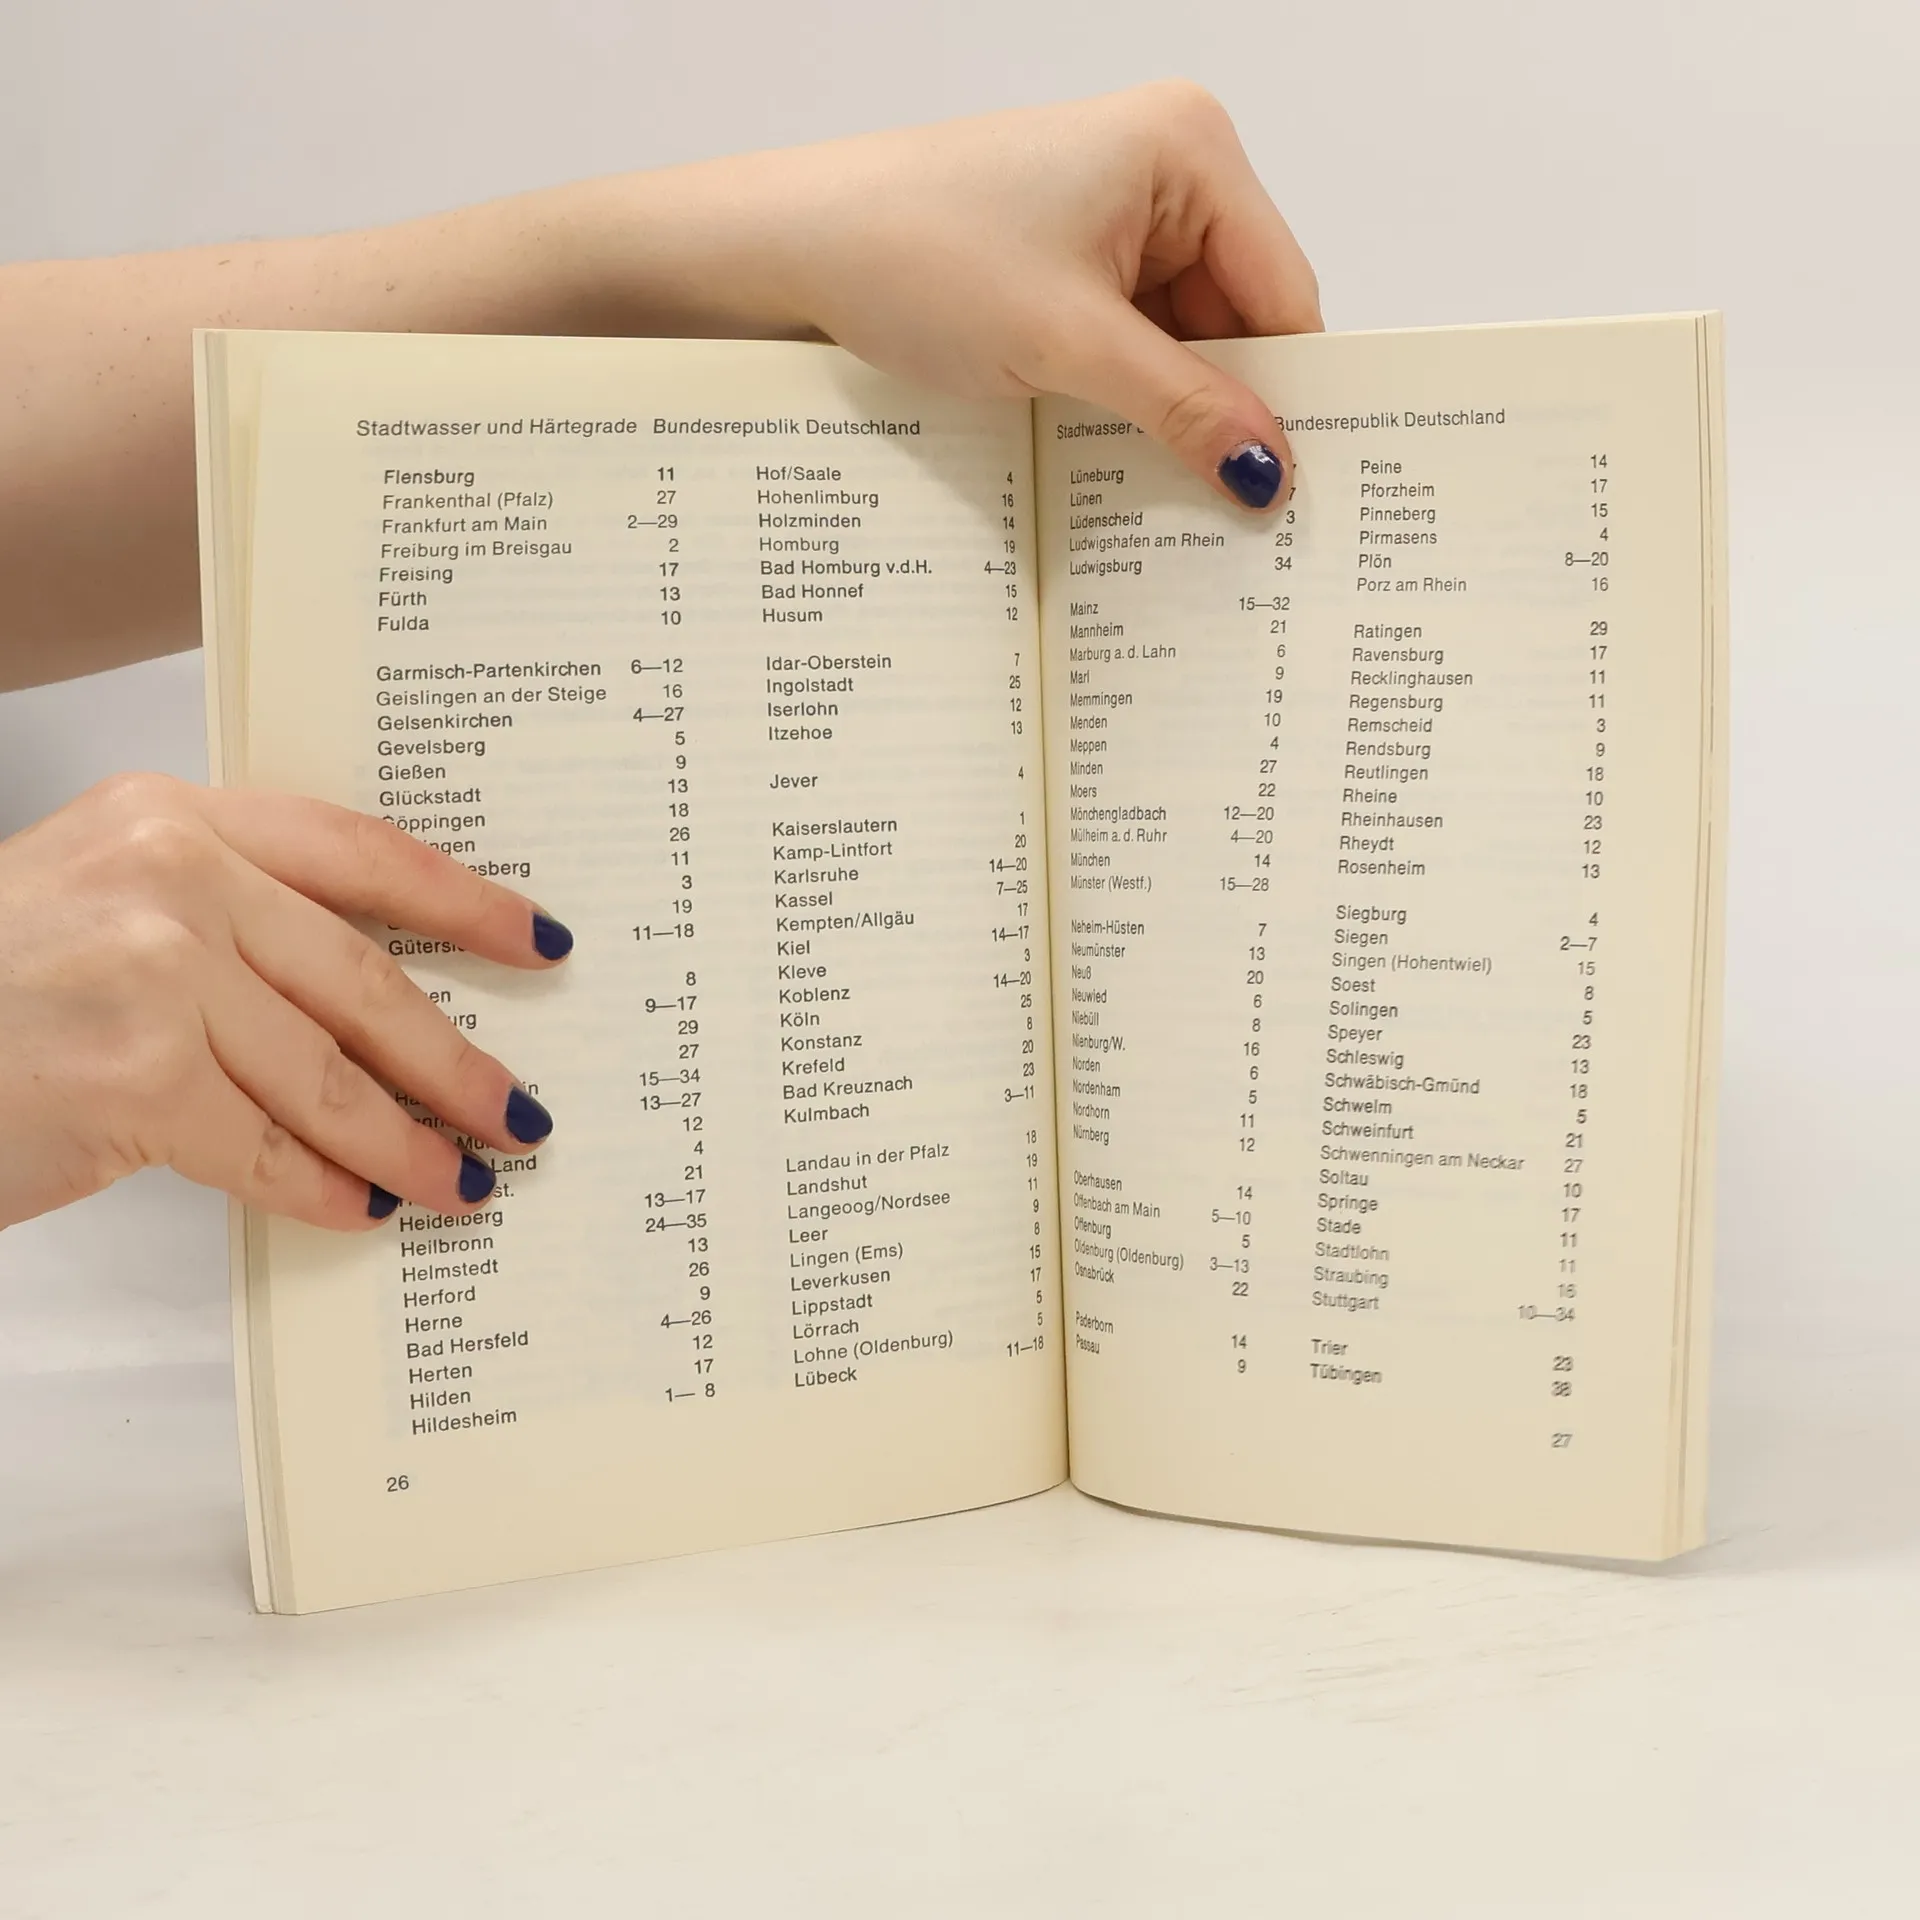 Stadtwasser und Härtegrade Bundesrepublik Deutschland
Flensburg 11
Frankenthal (Pfalz) 27
Frankfurt am Main 2—29
Freiburg im Breisgau 2
Freising 17
Fürth 13
Fulda 10
Garmisch-Partenkirchen 6—12
Geislingen an der Steige 16
Gelsenkirchen 4—27
Gevelsberg 5
Gießen 9
Glückstadt 13
Göppingen 18
26
11
3
19
11—18
8
9—17
29
27
15—34
13—27
12
Land 4
21
Heidelberg 13—17
Heilbronn 24—35
Helmstedt 13
Herford 26
Herne 9
Bad Hersfeld 4—26
Herten 12
Hilden 17
Hildesheim 1— 8
26
Hof/Saale 4
Hohenlimburg 16
Holzminden 14
Homburg 19
Bad Homburg v.d.H. 4—23
Bad Honnef 15
Husum 12
Idar-Oberstein 7
Ingolstadt 25
Iserlohn 12
Itzehoe 13
Jever 4
Kaiserslautern 1
Kamp-Lintfort 20
Karlsruhe 14—20
Kassel 7—25
Kempten/Allgäu 17
Kiel 14—17
Kleve 3
Koblenz 14—20
Köln 25
Konstanz 8
Krefeld 20
Bad Kreuznach 23
Kulmbach 3—11
Landau in der Pfalz 18
Landshut 19
Langeoog/Nordsee 11
Leer 9
Lingen (Ems) 8
Leverkusen 15
Lippstadt 17
Lörrach 5
Lohne (Oldenburg) 5
Lübeck 11—18
Stadtwasser Bundesrepublik Deutschland
Lüneburg
Lünen
Lüdenscheid 3
Ludwigshafen am Rhein 25
Ludwigsburg 34
Mainz 15—32
Mannheim 21
Marburg a. d. Lahn 6
Marl 9
Memmingen 19
Menden 10
Meppen 4
Minden 27
Moers 22
Mönchengladbach 12—20
Mülheim a. d. Ruhr 4—20
München 14
Münster (Westf.) 15—28
Neheim-Hüsten 7
Neumünster 13
Neuß 20
Neuwied 6
Niebüll 8
Nienburg/W. 16
Norden 6
Nordenham 5
Nordhorn 11
Nürnberg 12
Oberhausen 14
Offenbach am Main 5—10
Offenburg 5
Oldenburg (Oldenburg) 3—13
Osnabrück 22
Paderborn 14
Passau 9
Peine 14
Pforzheim 17
Pinneberg 15
Pirmasens 4
Plön 8—20
Porz am Rhein 16
Ratingen 29
Ravensburg 17
Recklinghausen 11
Regensburg 11
Remscheid 3
Rendsburg 9
Reutlingen 18
Rheine 10
Rheinhausen 23
Rheydt 12
Rosenheim 13
Siegburg 4
Siegen 2—7
Singen (Hohentwiel) 15
Soest 8
Solingen 5
Speyer 23
Schleswig 13
Schwäbisch-Gmünd 18
Schwelm 5
Schweinfurt 21
Schwenningen am Neckar 27
Soltau 10
Springe 17
Stade 11
Stadtlohn 11
Straubing 16
Stuttgart 10—34
Trier 23
Tübingen 38
27